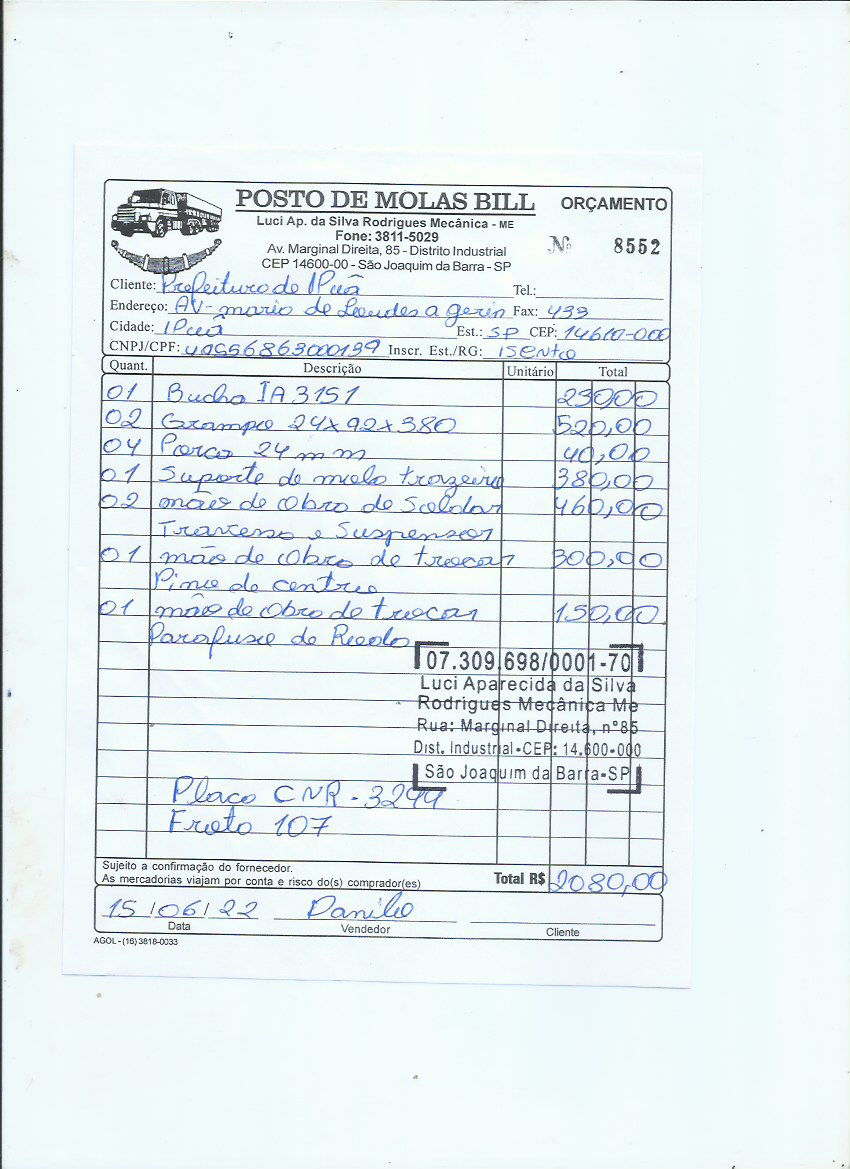 POSTO DE MOLAS BILL
ORÇAMENTO
Luci Ap. da Silva Rodrigues Mecânica - ME
Fone: 3811-5029
Nº 8552
Av. Marginal Direita, 85 - Distrito Industrial
CEP 14600-00 - São Joaquim da Barra - SP
Cliente: Prefeitura de IPuã Tel.:
Endereço: AV- maria de Lourdes a gerin Fax: 433
Cidade: IPuã Est.: SP CEP: 14610-000
CNPJ/CPF: Inscr. Est./RG: ISENto
Quant. Descrição Unitário Total
01 Bucha IA 3151 230,00
02 Grampo 24x92x380 520,00
04 Porca 24 mm 40,00
01 Suporte de mola trazeiro 380,00
02 mão de Obra de Soldar 460,00
Travessa e Suspensor
01 mão de Obra de trocar 300,00
Pino de centro
01 mão de Obra de trocar 150,00
Parafuso de Roda
07.309.698/0001-70
Luci Aparecida da Silva
Rodrigues Mecânica Me
Rua: Marginal Direita, nº85
Dist. Industrial-CEP: 14.600-000
São Joaquim da Barra-SP
Placa CNR - 3244
Frota 107
Sujeito a confirmação do fornecedor.
As mercadorias viajam por conta e risco do(s) comprador(es)
Total R$ 2080,00
15/06/22 Danilo
Data Vendedor Cliente
AGOL - (16) 3818-0033